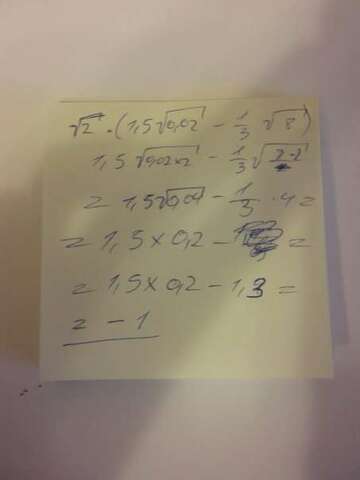 √2 · (1,5√0,02 - 1/3 √8)
1,5√0,02×2 - 1/3
= 1,5√0,04 - 1/3 · 4 =
= 1,5 × 0,2 - =
= 1,5 × 0,2 - 1,3 =
= - 1